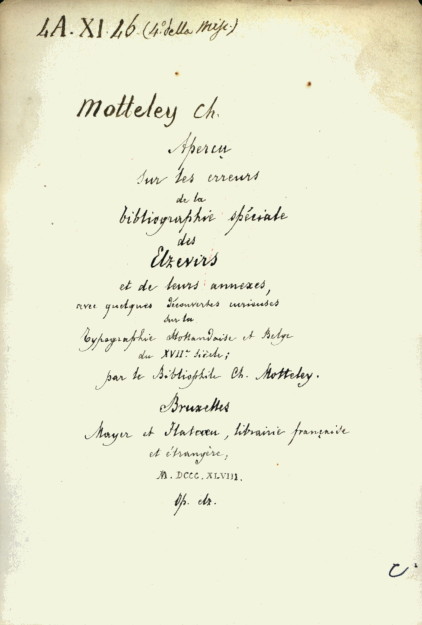 4A. XI. 46. (4º della Misc.)
Motteley Ch.
Aperçu
sur les erreurs
de la
bibliographie spéciale
des
Elzevirs
et de leurs annexes,
avec quelques découvertes curieuses
sur la
Typographie Hollandaise et Belge
du XVIIe siècle;
par le Bibliophile Ch. Motteley.
Bruxelles
Mayer et Flatau, librairie française
et étrangère;
M. DCCC. XLVIII.
Op. elz.
C.